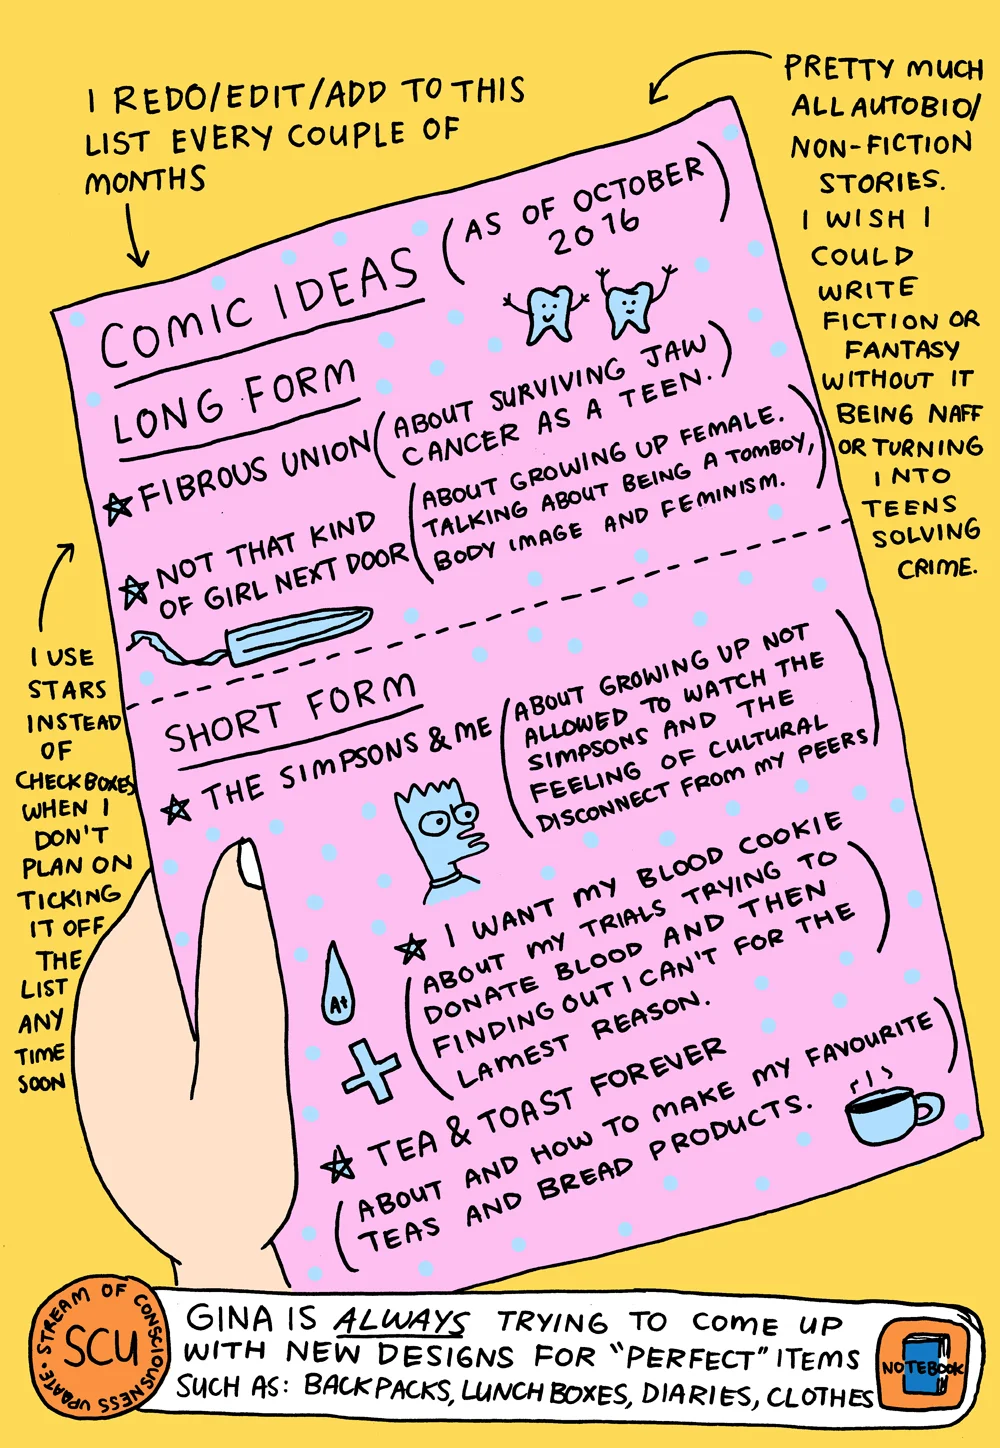 I REDO/EDIT/ADD TO THIS
LIST EVERY COUPLE OF
MONTHS
PRETTY MUCH
ALL AUTOBIO/
NON-FICTION
STORIES.
I WISH I
COULD
WRITE
FICTION OR
FANTASY
WITHOUT IT
BEING NAFF
OR TURNING
INTO
TEENS
SOLVING
CRIME.
COMIC IDEAS (AS OF OCTOBER
2016)
LONG FORM
FIBROUS UNION (ABOUT SURVIVING JAW
CANCER AS A TEEN.)
NOT THAT KIND
OF GIRL NEXT DOOR
(ABOUT GROWING UP FEMALE.
TALKING ABOUT BEING A TOMBOY,
BODY IMAGE AND FEMINISM.)
I USE
STARS
INSTEAD
OF
CHECKBOXES
WHEN I
DON'T
PLAN ON
TICKING
IT OFF
THE
LIST
ANY
TIME
SOON
SHORT FORM
THE SIMPSONS & ME
(ABOUT GROWING UP NOT
ALLOWED TO WATCH THE
SIMPSONS AND THE
FEELING OF CULTURAL
DISCONNECT FROM MY PEERS)
I WANT MY BLOOD COOKIE
(ABOUT MY TRIALS TRYING TO
DONATE BLOOD AND THEN
FINDING OUT I CAN'T FOR THE
LAMEST REASON.)
A+
TEA & TOAST FOREVER
(ABOUT AND HOW TO MAKE MY FAVOURITE
TEAS AND BREAD PRODUCTS.)
STREAM OF CONSCIOUSNESS UPDATE
SCU
GINA IS ALWAYS TRYING TO COME UP
WITH NEW DESIGNS FOR "PERFECT" ITEMS
SUCH AS: BACKPACKS, LUNCHBOXES, DIARIES, CLOTHES
NOTEBOOK